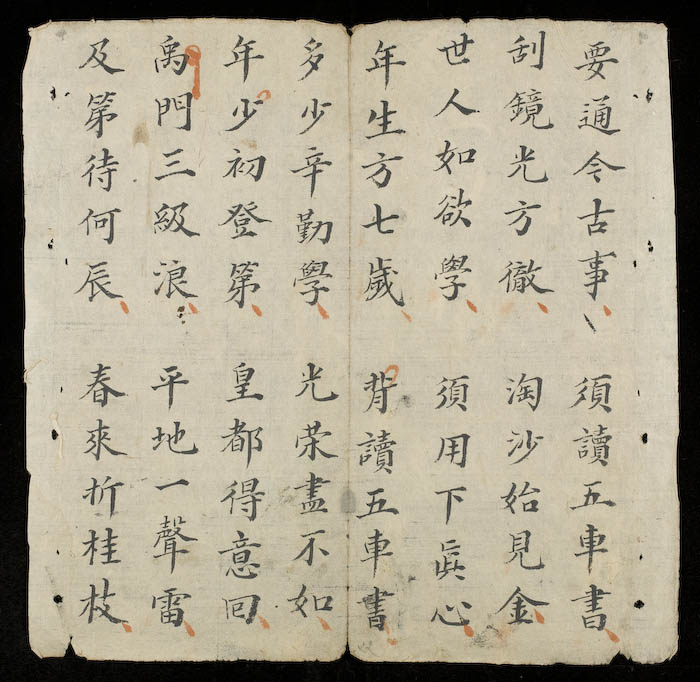 要通今古事 須讀五車書
刮鏡光方徹 淘沙始見金
世人如欲學 須用下眞心
年生方七歲 背讀五車書
多少辛勤學 光荣盡不如
年少初登第 皇都得意回
禹門三級浪 平地一聲雷
及第待何辰 春來折桂枝